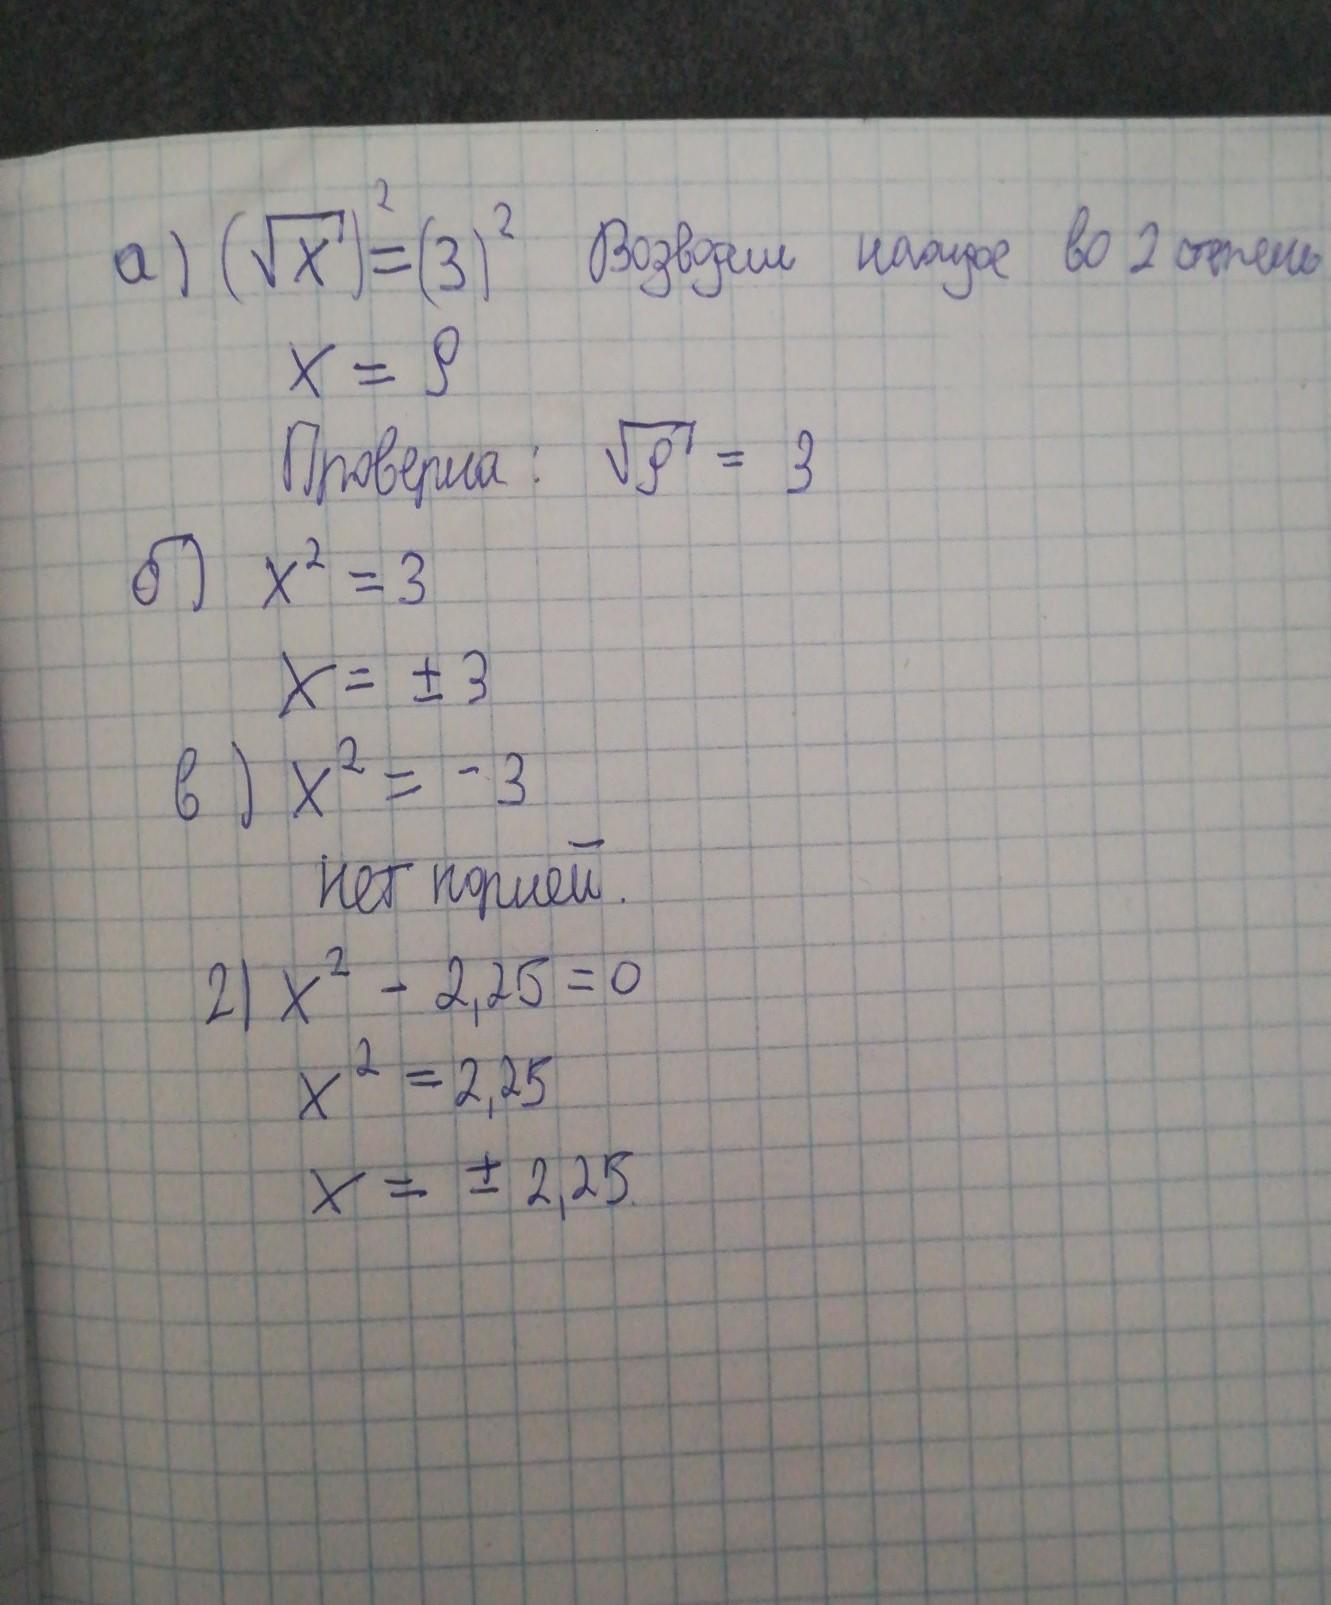 а) (√x)² = (3)² Возводим каждое во 2 степень
x = 9
Проверка: √9 = 3
б) x² = 3
x = ± 3
в) x² = -3
нет корней.
г) x² - 2,25 = 0
x² = 2,25
x = ± 2,25